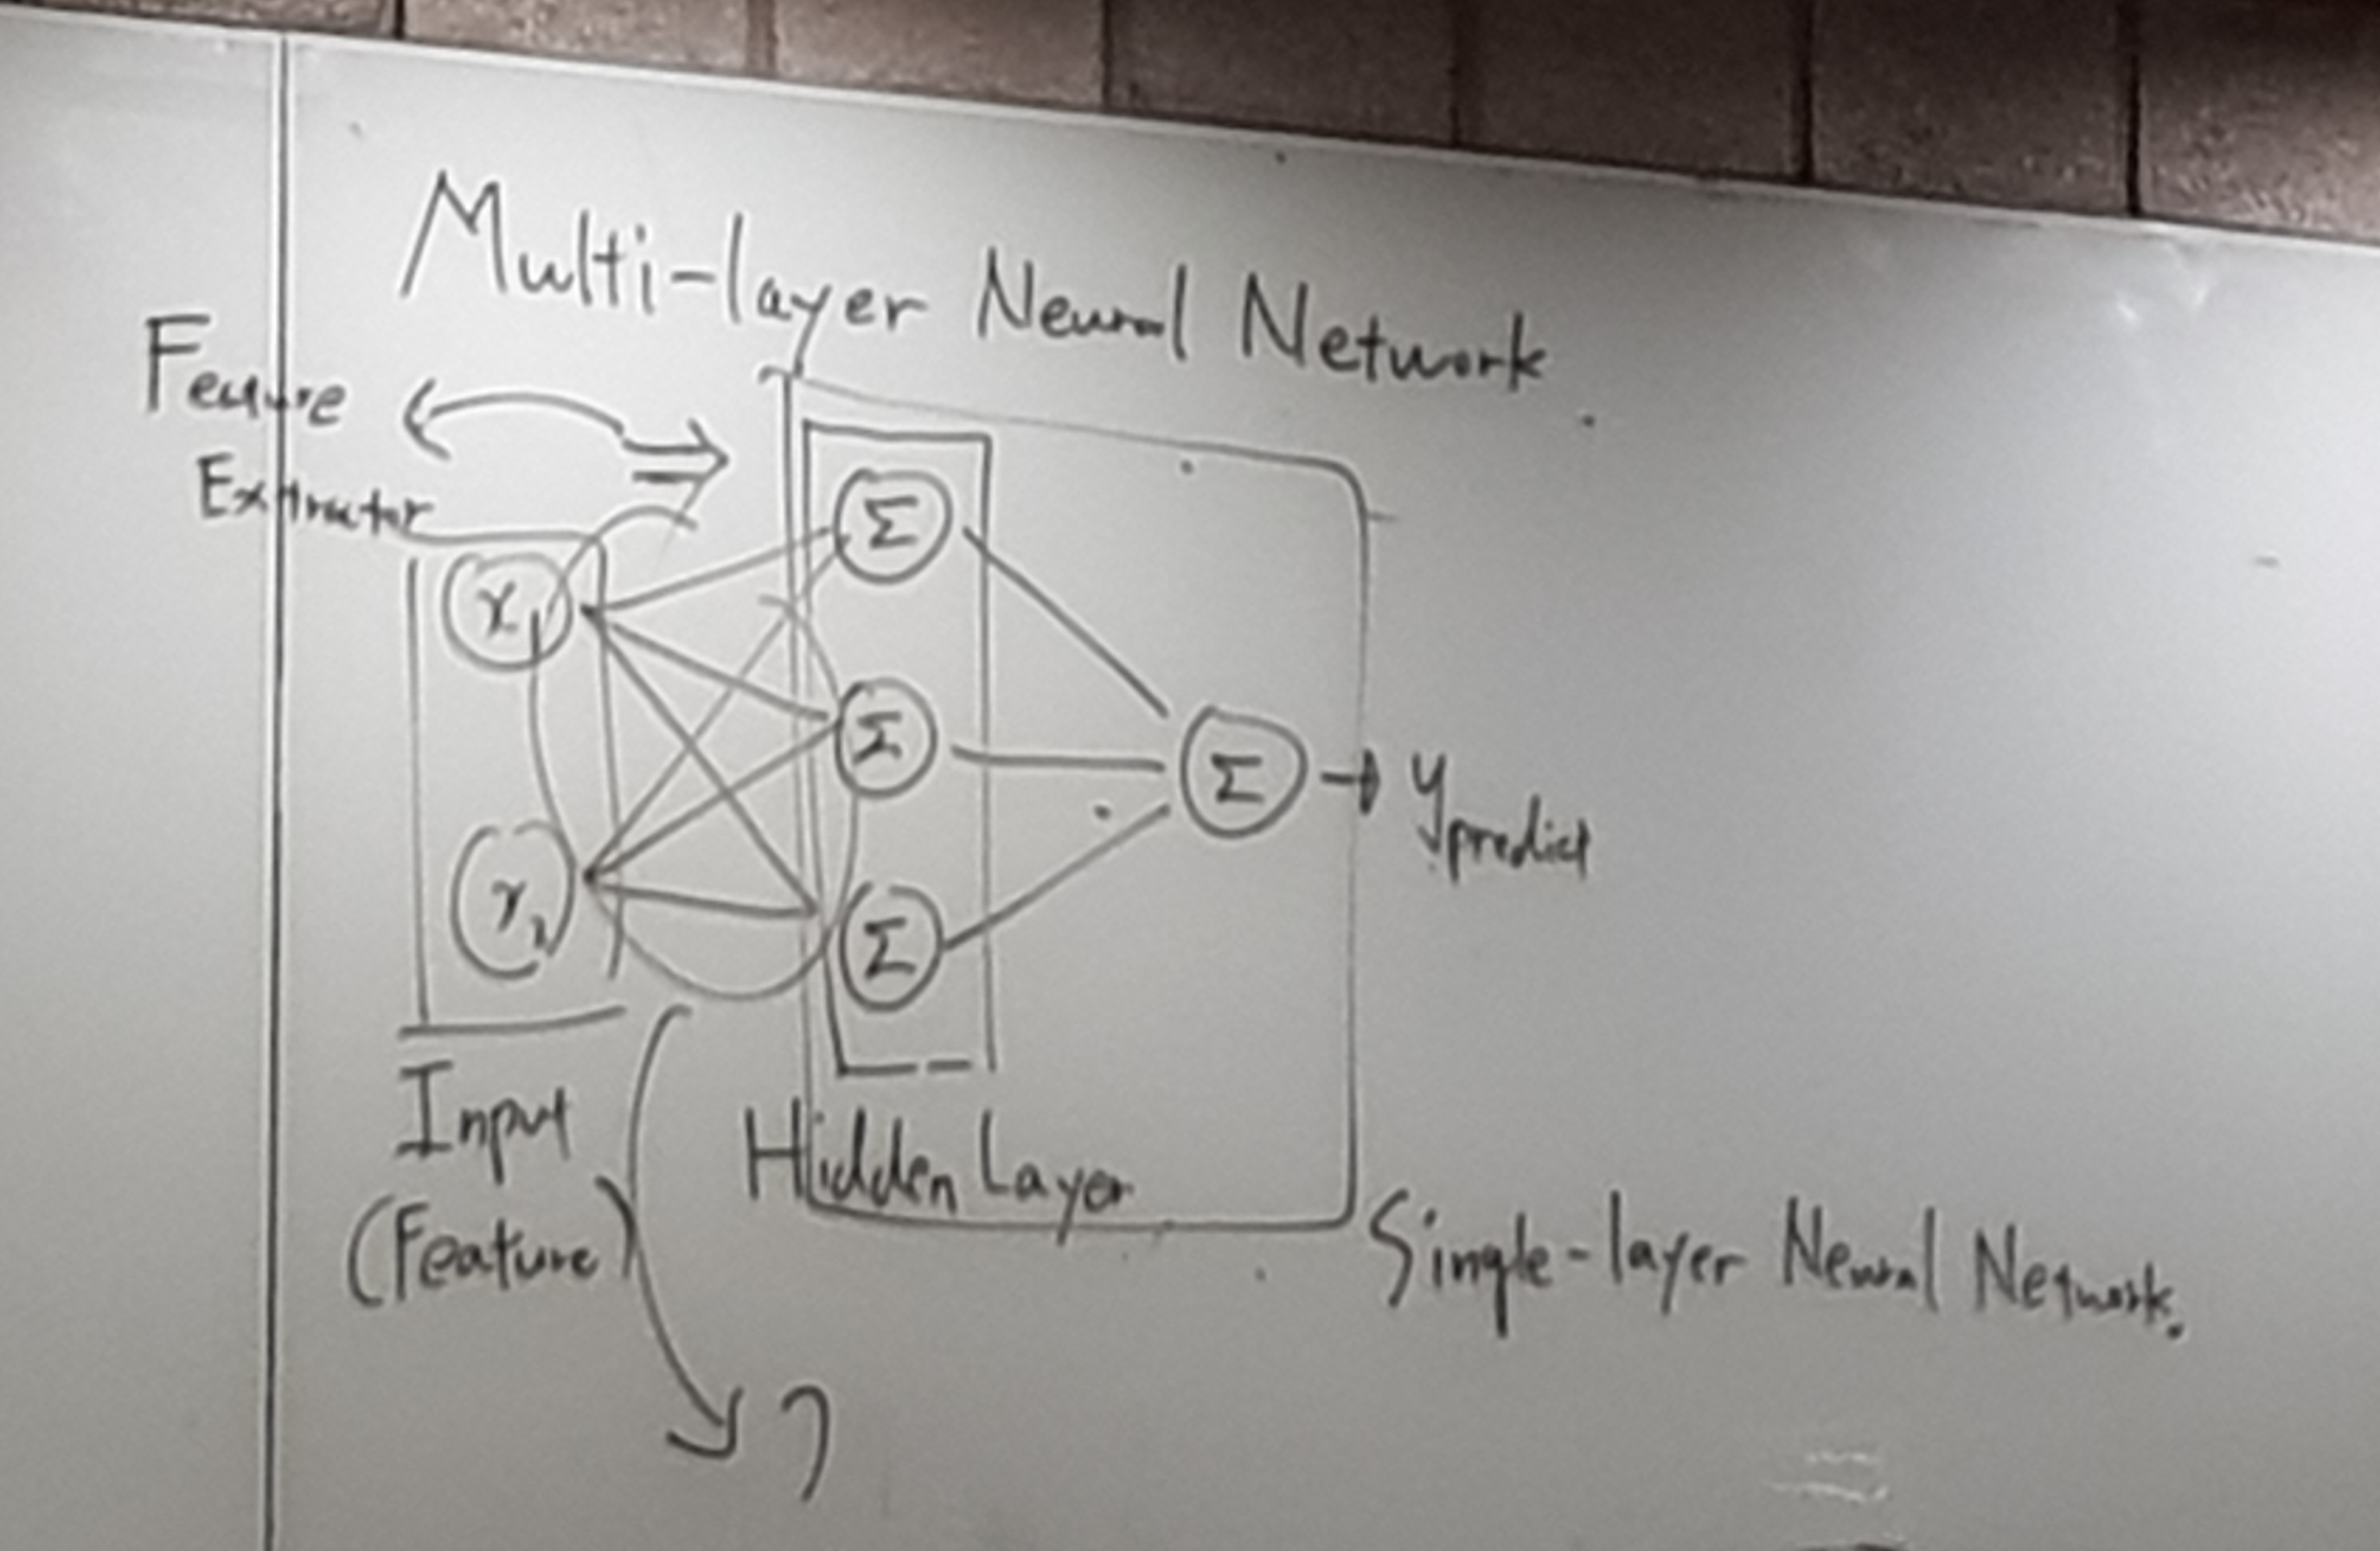 Multi-layer Neural Network.
Feature
Extractor
x1
x2
Σ
Σ
Σ
Σ → y predict
Input
(Feature)
Hidden Layer
Single-layer Neural Network.
?